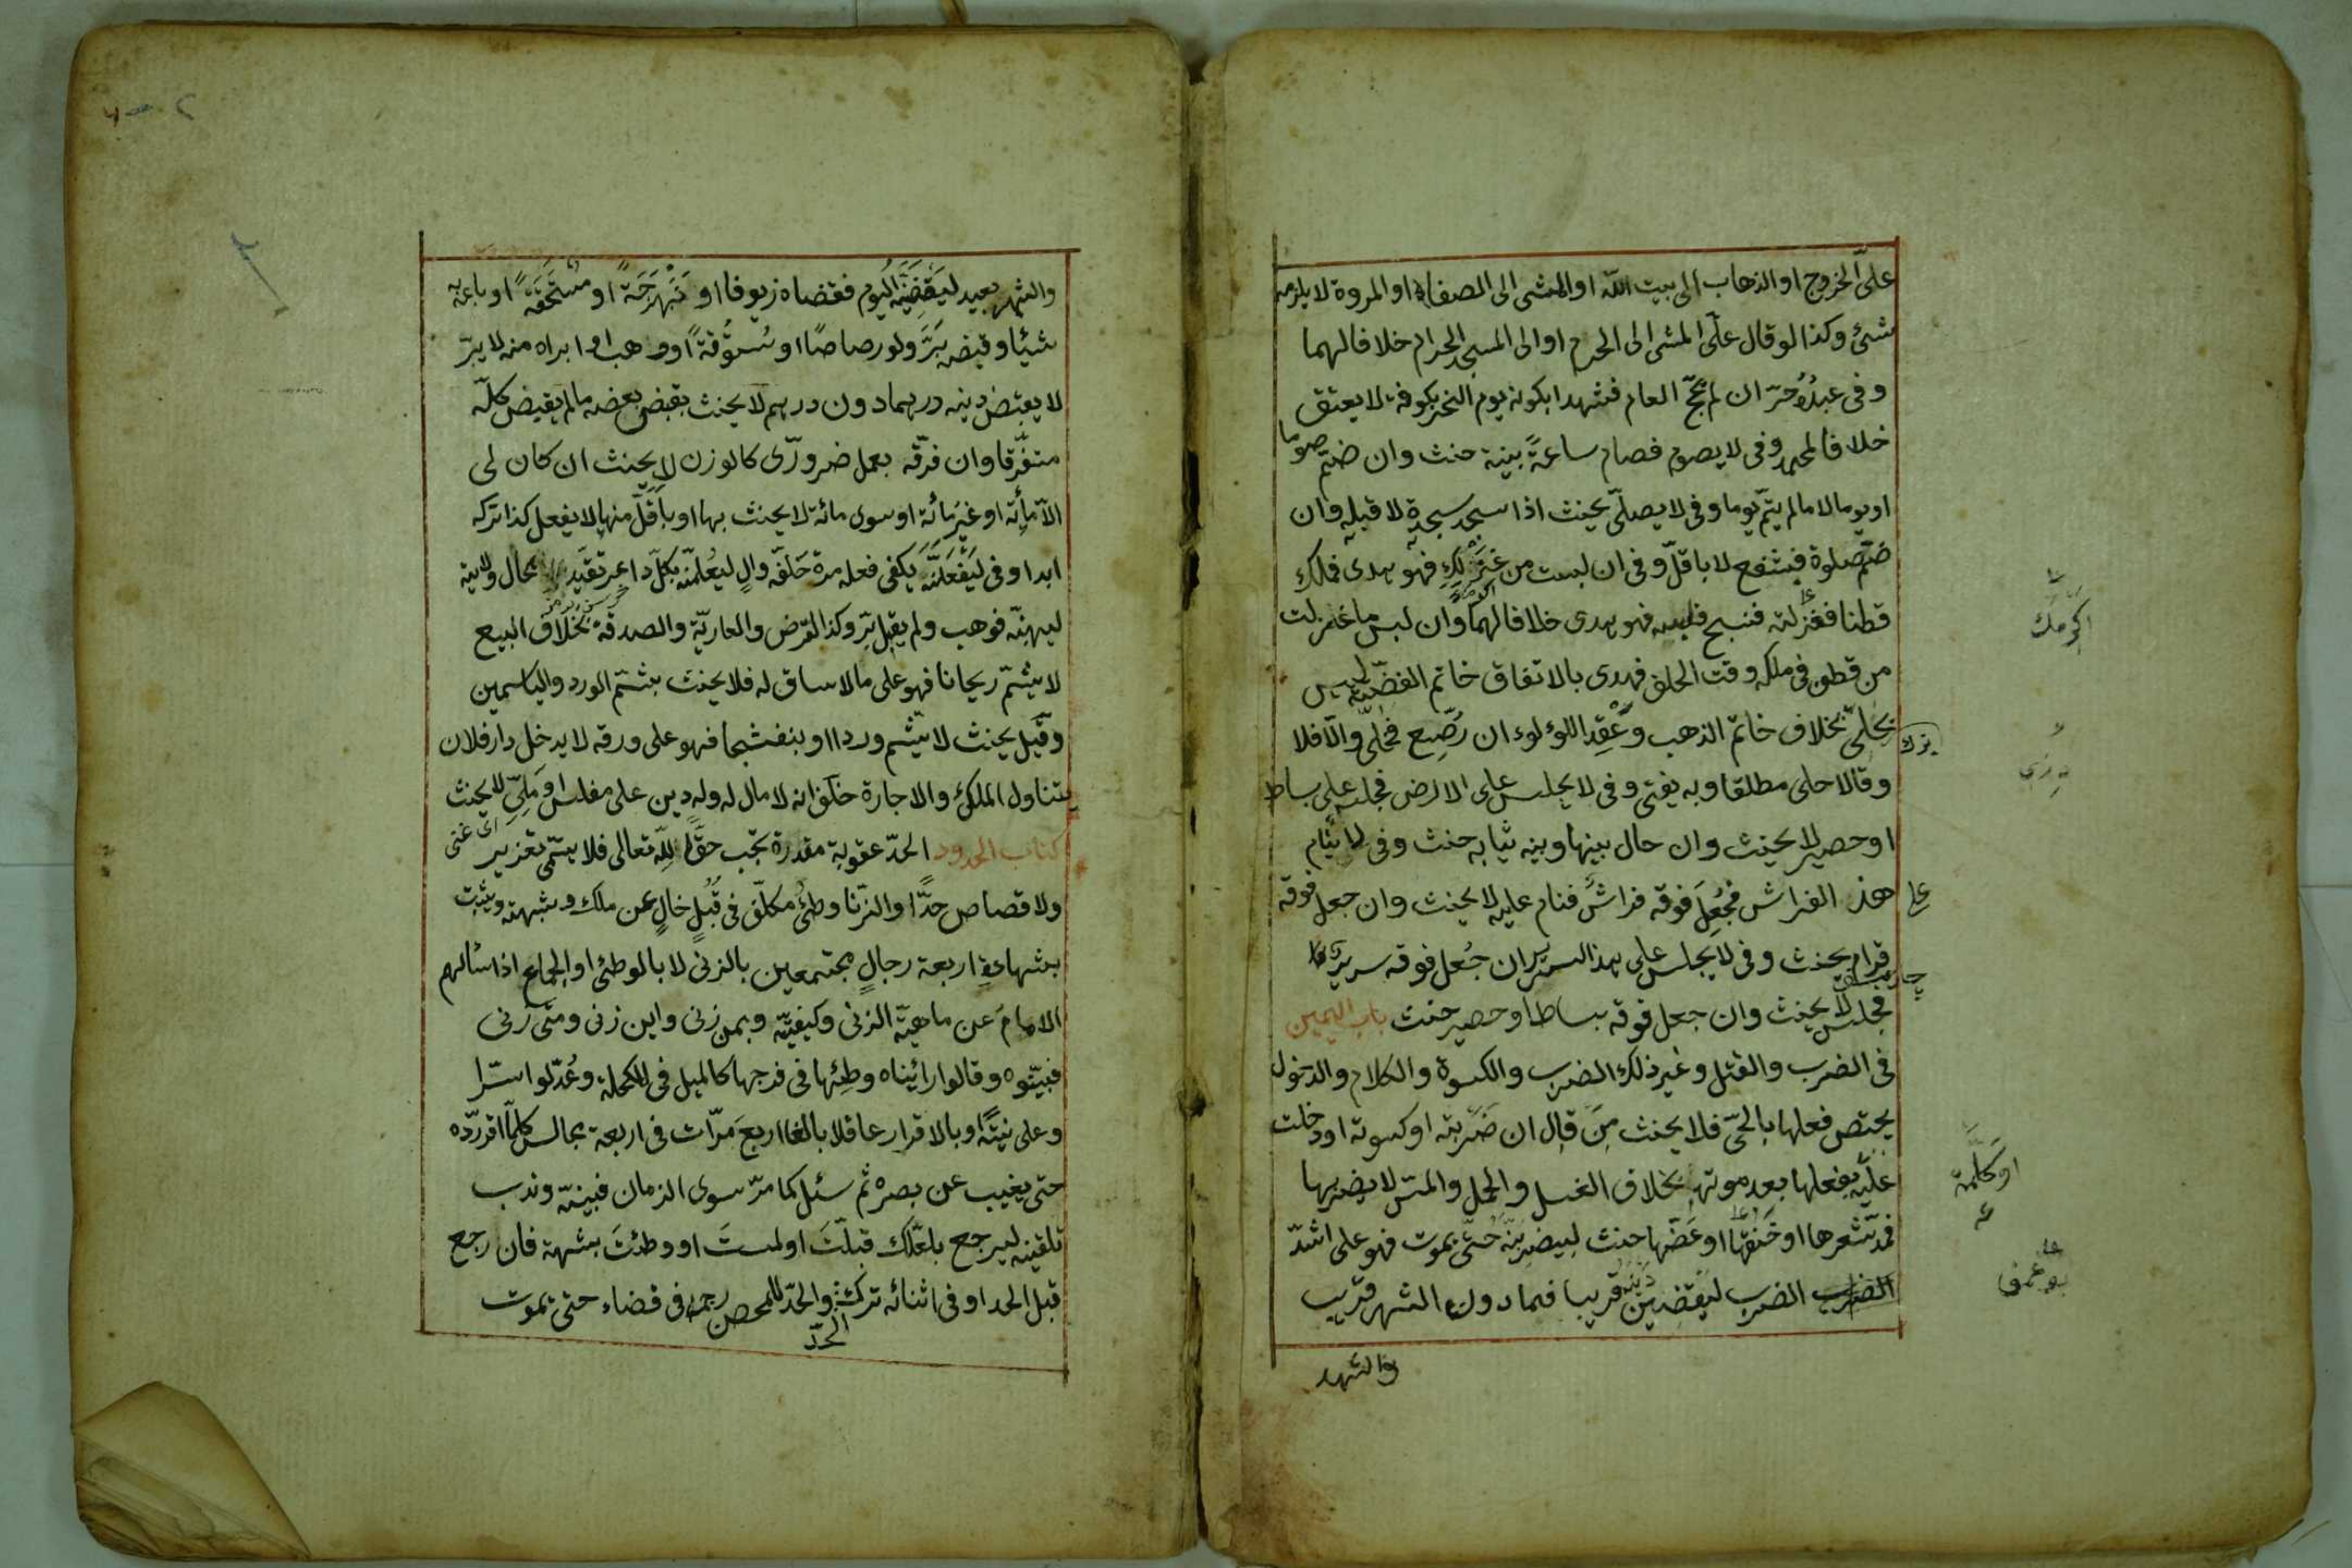 علىّ الخروج او الذهاب الى بيت اللّه او المشى الى الصفا او المروة لا يلزمه
شئ وكذا لو قال علىّ المشى الى الحرم او الى المسجد الحرام خلافا لهما
وفى عبدُهُ حرّ ان لم يحجّ العام فشهدا بكونه يوم النحر بكوفة لا يعتق
خلافا لمحمد وفى لا يصوم فصام ساعةً بنية حنث وان ضمّ صوما
او يوما لا مالم يتمّ يوما وفى لا يصلّى يحنث اذا سجد سجدة لا قبله وان
ضمّ صلوة فبشفع لا باقلّ وفى ان لبست من غزلكِ فهو هدى فملك
قطنا فغزلته فنسج فلبسه فهو هدى خلافا لهما وان لبس ما غزلت
من قطن فى ملكه وقت الحلف فهدى بالاتفاق خاتم الفضّة ليس
بحلىّ بخلاف خاتم الذهب وعِقد اللؤلوء ان رُصّع فحلىّ والّا فلا
وقالا حلى مطلقا وبه يفتى وفى لا يجلس على الارض فجلس على بساط
او حصير لا يحنث وان حال بينها وبينه ثيابه حنث وفى لا ينام
على هذا الفراش فجُعِلَ فوقه فراش فنام عليه لا يحنث وان جعل فوقه
قرام يحنث وفى لا يجلس على هذا السرير ان جُعل فوقه سرير
فجلس لا يحنث وان جعل فوقه بساط او حصير حنث باب اليمين
فى الضرب والقتل وغير ذلك الضرب والكسوة والكلام والدخول
يختص فعلها بالحىّ فلا يحنث مَن قال ان ضربته او كسوته او دخلت
عليه بفعلها بعد موته بخلاف الغسل والحمل والمسّ لا يضربها
فمدّ شعرها او خنقها او عَضّها حنث ليضربنّه حتّى يموت فهو على اشدّ
الضرب الضرب ليقضينّ دينه قريبا فما دون الشهر قريب
والشهر
اكرمك
يزك
او كلّمته
والشهر بعيد ليَقضِيَنّه اليوم فقضاه زيوفا او نَبَهرَجَةً او مستحَقّةً او باعه به
شيئا وقبضه بَرَّ ولو رصاصًا او سُتّوقةً او وهبه او ابراه منه لا يبرّ
لا يقبض دينه درهما دون درهم لا يحنث بقبض بعضه مالم يقبض كلّه
متفرّقا وان فرّقه بعمل ضرورّى كالوزن لا يحنث ان كان لى
الّا مأئة او غير مائة او سوى مائة لا يحنث بها او باقلّ منها لا يفعل كذا تركه
ابدا وفى ليَفعَلَنَّه يكفى فعله مرة حَلّفه والٍ ليُعْلِمنّه بكلّ داعر تقيّد بحال ولايته
ليهبنّه فوهب ولم يقبل برّ وكذا القرض والعاريّة والصدقة بخلاف البيع
لا يشمّ ريحانا فهو على ما لا ساق له فلا يحنث بشمّ الورد والياسمين
وقيل يحنث لا يشم وردا او بنفشجا فهو على ورقه لا يدخل دار فلان
يتناول الملك والاجارة حلف انه لا مال له وله دين على مفلس او مَلِىّ لا يحنث
اى غنى
كتاب الحدود الحدّ عقوبة مقدرة تجب حقًّا للّه تعالى فلا يسمّى تعزير
ولا قصاص حدًّا والزنا وطئ مكلّف فى قُبُلٍ خالٍ عن ملك وشبهته ويثبت
بشهادةِ اربعة رجالٍ مجتمعين بالزنى لا بالوطئ او الجماع اذا سألهم
الامام عن ماهيّة الزنى وكيفيّته وبمن زنى واين زنى ومتى زنى
فبيّنوه وقالوا رأيناه وطِئها فى فرجها كالميل فى المكحلة وعُدّلوا سرّا
وعلى نيّةً او بالاقرار عاقلا بالغا اربعَ مَرّات فى اربعة مجالس كلّما اقر ردّه
حتى يغيب عن بصره ثم سئل كما مرّ سوى الزمان فبيّنه وندب
تلقينه ليرجع بلعلّك قبلّتَ او لمستَ او وطئتَ بشبهة فان رجع
قبل الحد او فى اثنائه ترك والحدّ للمحصن رجمه فى فضاء حتى يموت
الحدّ